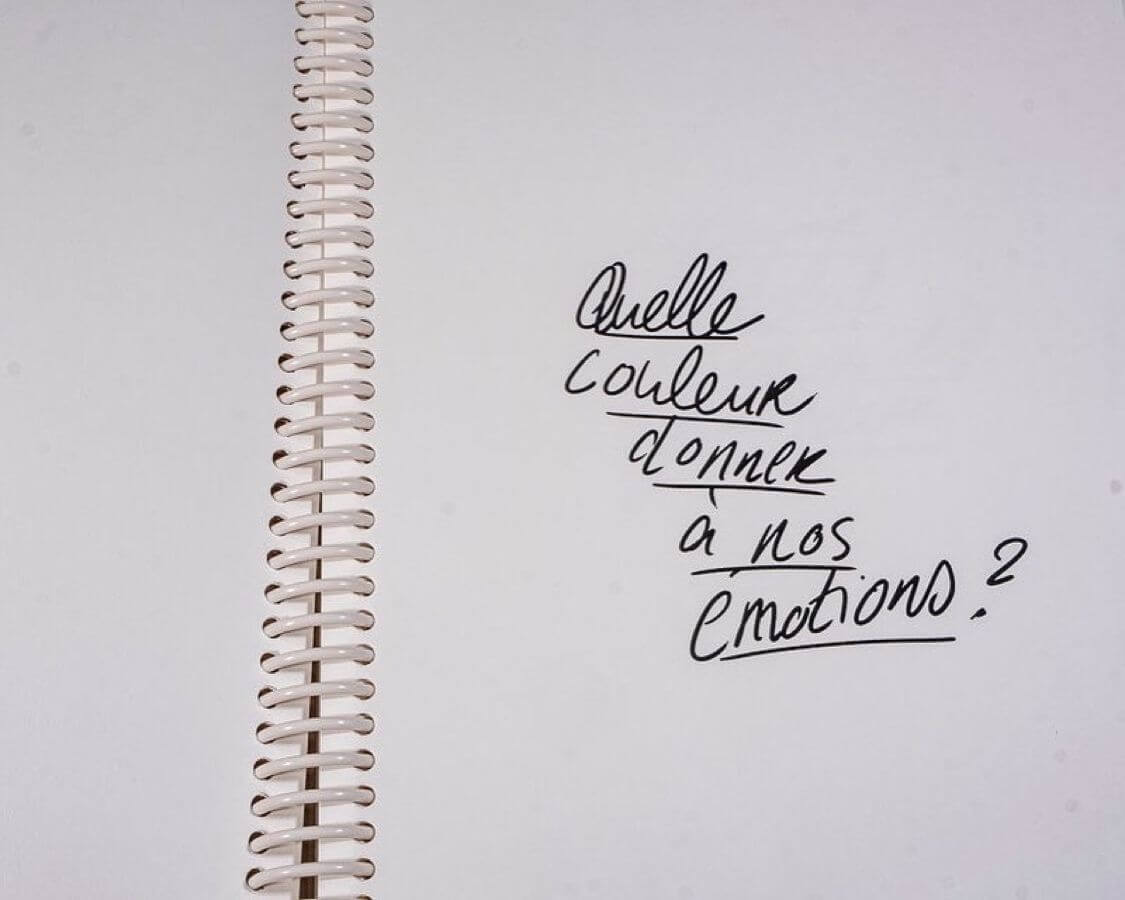 Quelle
couleur
donner
à nos
émotions?